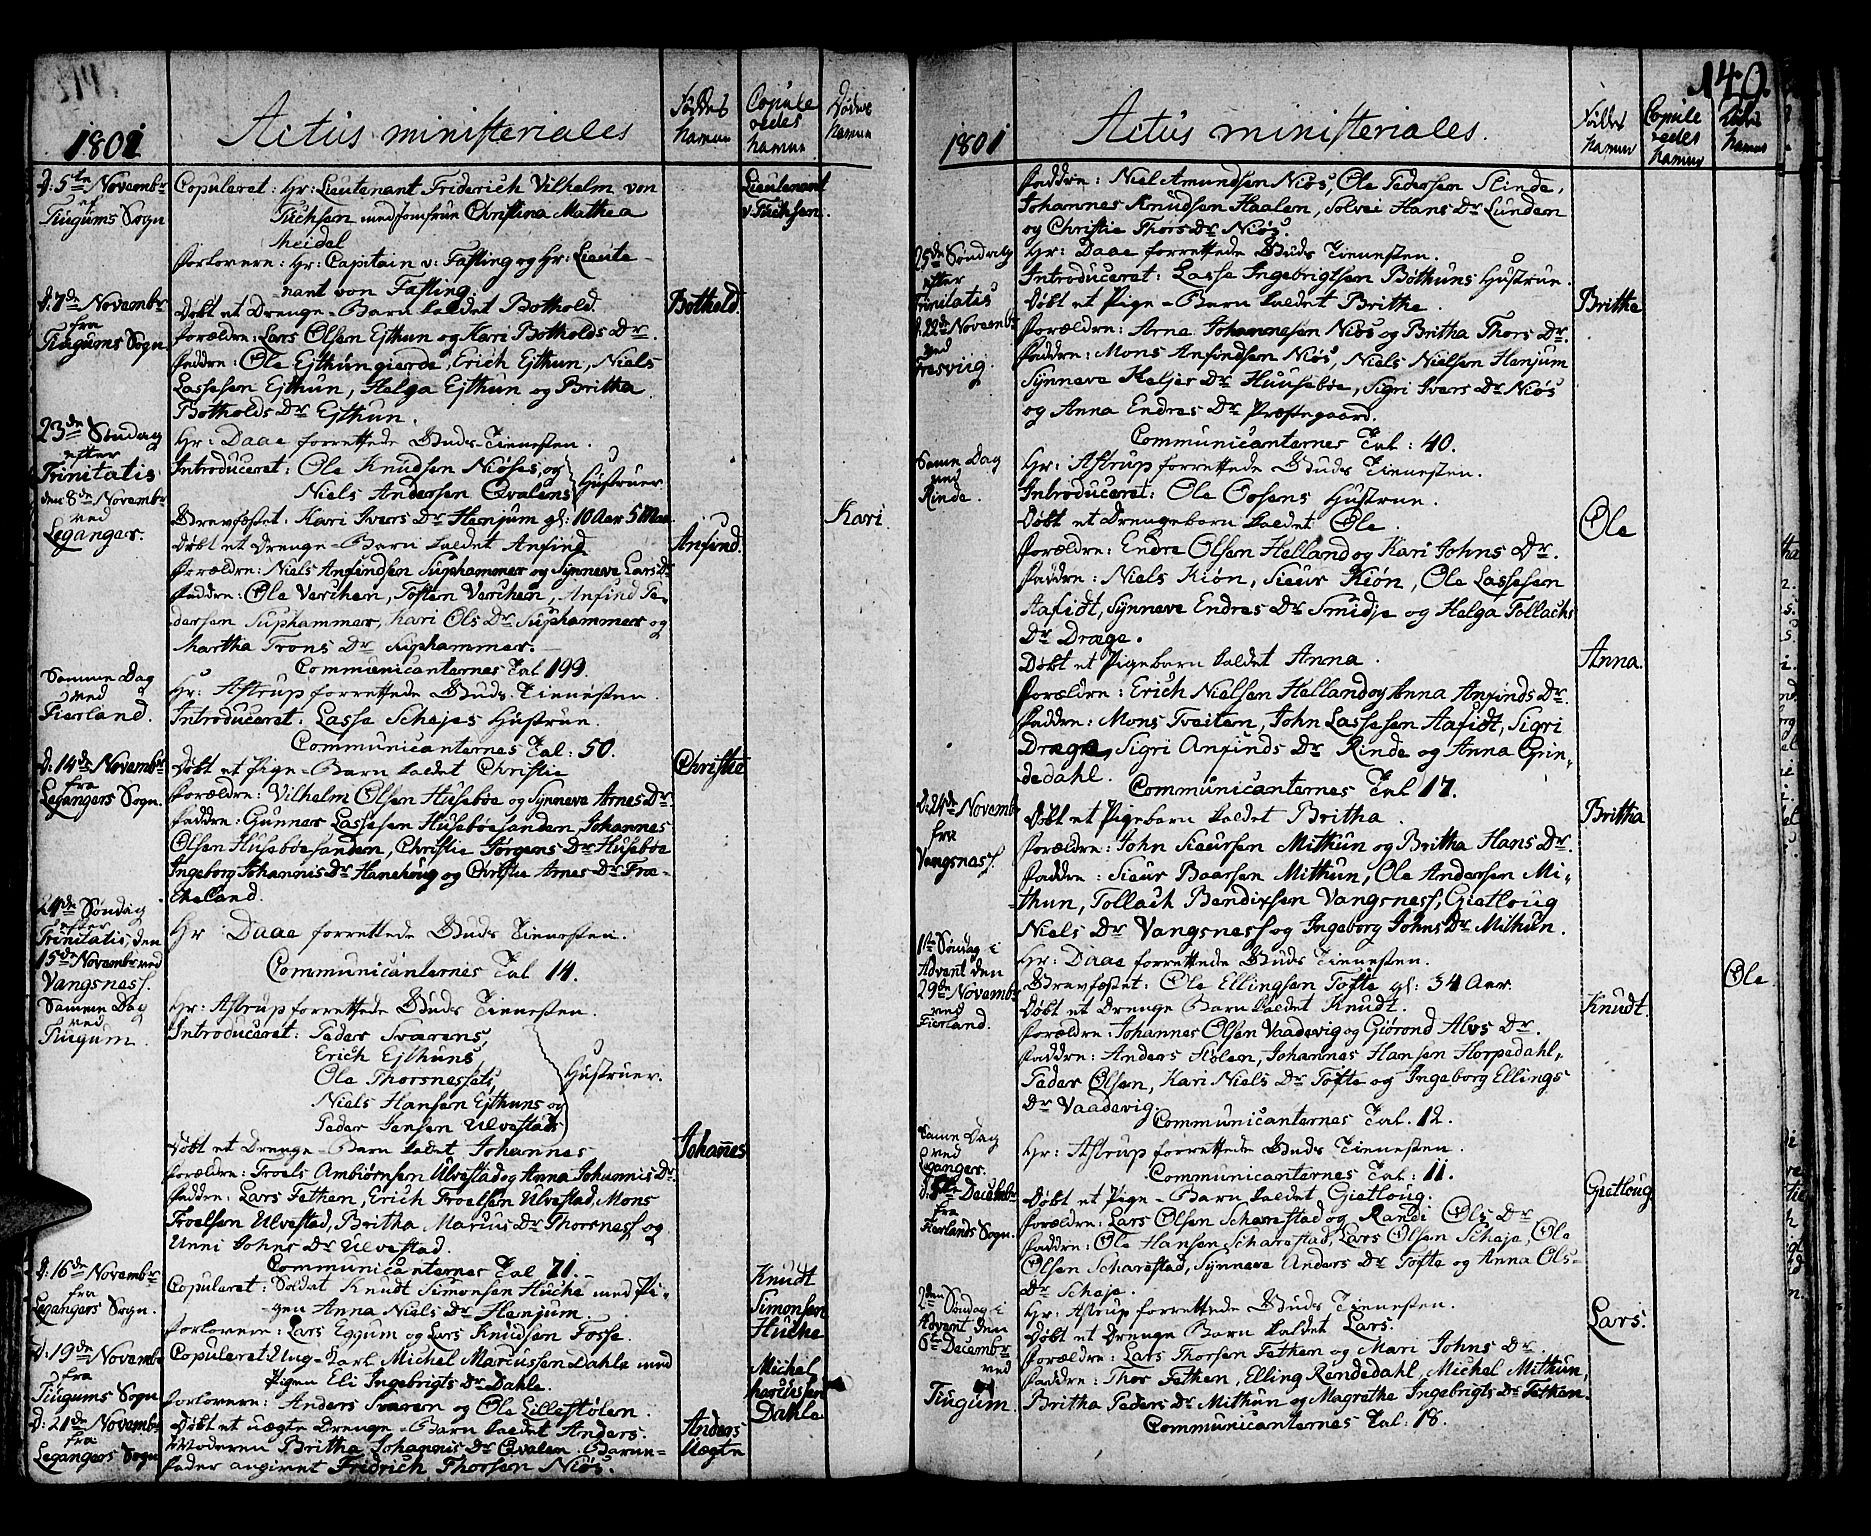 1801
Actus ministeriales
Fødtes Namne
Copule redes Namne
Dødes Namne
d: 5te Novembr af Tiugums Sogn
Copuleret: Hr: Lieutenant Friderich Vilhelm von
Tuchsen med Jomfrue Christina Mathea
Meidel
Lieutenant v: Tuchsen.
Forlovere: Hr: Capitain v: Fasting og Hr: Lieute-
nant von Fasting.
d: 7de Novembr fra Tiugums Sogn.
Døbt et Drenge-Barn kaldet Bothold.
Bothold.
Forældre: Lars Olsen Ejthun og Kari Botholds Dr.
Faddre: Ole Ejthungierde, Erich Ejthun, Niels
Lassesen Ejthun, Helga Ejthun og Britha
Botholds Dr Ejthun.
23de Søndag efter Trinitatis den 8de Novembr ved Leganger.
Hr: Daae forrettede Guds-Tienesten.
Introduceret: Ole Knudsen Niøses, og
Niels Andersen Qvalens Hustruer
Grevfæstet: Kari Ivers Dr Henjum gl: 10 Aar 5 Maan
Kari.
Døbt et Drenge-Barn kaldet Anfind
Anfind.
Forældre: Niels Anfindsen Suphammer og Synneve Lars Dr
Faddre: Ole Verchen, Tosten Verchen, Anfind Pe-
dersen Suphammer, Kari Ols Dr Suphammer og
Martha Trons Dr Suphammer.
Communicanternes Tal 199.
Samme Dag ved Fierland.
Hr: Astrup forrettede Guds-Tienesten.
Introduceret: Lasse Schejes Hustrue.
Communicanternes Tal: 50.
d: 14de Novembr fra Legangers Sogn.
Døbt et Pige-Barn kaldet Christie
Christie
Forældre: Vilhelm Olsen Husebøe og Synneve Arnes Dr.
Faddre: Gunner Lassesen Husebøesanden, Johannes
Olsen Husebøesanden, Christie Jørgens Dr Husebøe
Ingeborg Johannis Dr Hanehoug og Christie Arnes Dr Fre-
cheland.
24de Søndag efter Trinitatis, den 15de Novembr ved Vangsness.
Hr Daae forrettede Guds Tienesten.
Communicanternes Tal 14.
Samme Dag ved Tiugum.
Hr: Astrup forrettede Guds Tienesten.
Introduceret: Peder Sværens,
Erich Ejthuns
Ole Thorsnessets,
Niels Hansen Ejthuns og
Peder Jensen Ulvestads
Hustruer.
Døbt et Drenge-Barn kaldet Johannes
Johannes
Forældre: Troels Ambiørnsen Ulvestad og Anna Johannis Dr.
Faddre: Lars Fethen, Erich Troelsen Ulvestad, Mons
Troelsen Ulvestad, Britha Marius Dr Thorsness og
Unni Johns Dr Ulvestad.
Communicanternes Tal 71.
d: 16de Novembr fra Legangers Sogn.
Copuleret: Soldat Knudt Simonsen Huche med Pi-
gen Anna Niels Dr Henjum
Forlovere: Lars Eggum og Lars Knudsen Fosse.
Knudt Simonsen Huche
D: 19de Novembr fra Tiugums Sogn
Copuleret: Ung-Karl Michel Mariussen Dahle med
Pigen Eli Ingebrigts Dr Dahle.
Forlovere: Anders Sværen og Ole Eillestølen.
Michel Mariussen Dahle
d: 21de Novembr fra Legangers Sogn
Døbt et uægte Drenge-Barn kaldet Anders.
Moderen Britha Johannis Dr Qvalen. Barne-
fader angivet Fridrich Thorsen Niøs.
Anders Uægte
140.
1801
Actus ministeriales.
Fødtes Namne
Copule redes Namne
Dødes Namne
Faddre: Niel Amundsen Niøs, Ole Pedersen Slinde,
Johannes Knudsen Haalen, Solvei Hans Dr Lunden
og Christie Thors Dr Niøs.
25de Søndag efter Trinitatis d: 22de Novembr ved Fresviig.
Hr: Daae forrettede Guds Tienesten.
Introduceret: Lasse Ingebrigtsen Bøthuns Hustrue.
Døbt et Pige-Barn kaldet Brithe.
Brithe
Forældre: Arne Johannesen Niøs og Britha Thors Dr.
Faddre: Mons Anfindsen Niøs, Niels Nielsen Henjum
Synneve Heljes Dr Huusebøe, Sigri Ivers Dr Niøs
og Anna Endres Dr Præstegaard.
Communicanternes Tal: 40.
Samme Dag ved Rinde.
Hr: Astrup forrettede Guds Tienesten.
Introduceret: Ole Oosens Hustrue.
Døbt et Drengebarn kaldet Ole.
Ole
Forældre: Endre Olsen Helland og Kari Johns Dr.
Faddre: Niels Kiøn, Sieur Kiøn, Ole Lassesen
Aafidt, Synneve Endres Dr Smidje og Helga Tollachs
Dr Drege.
Døbt et Pigebarn kaldet Anna.
Anna.
Forældre: Erich Nielsen Helland og Anna Anfinds Dr.
Faddre: Mons Tveiten, John Lassesen Aafidt, Sigri
Drege, Sigri Anfinds Dr Rinde og Anna Grin-
dedahl.
Communicanternes Tal 17.
d: 24de Novembr fra Vangsness.
Døbt et Pigebarn kaldet Britha.
Britha
Forældre: John Sieursen Mithun og Britha Hans Dr.
Faddre: Sieur Baarsen Mithun, Ole Andersen Mi-
thun, Tollach Bendixsen Vangsness, Gietloug
Niels Dr Vangsness og Ingeborg Johns Dr Mithun.
1ste Søndag i Advent den 29de Novembr ved Fierland.
Hr: Daae forrettede Guds Tienesten.
Grevfæstet: Ole Ellingsen Tofte gl: 34 Aar.
Ole
Døbt et Drenge Barn kaldet Knudt.
Knudt.
Forældre: Johannes Olsen Vaadevig og Giørond Alvs Dr.
Faddre: Anders Holen, Johannes Hansen Horpedahl,
Peder Olsen, Kari Niels Dr Tofte og Ingeborg Ellings
Dr Vaadevig.
Communicanternes Tal. 12.
Samme Dag ved Leganger.
Hr: Astrup forrettede Guds Tienesten.
Communicanternes Tal: 11.
Decembr fra Fierlands Sogn.
Døbt et Pige-Barn kaldet Gietloug.
Gietloug
Forældre: Lars Olsen Scharestad og Randi Ols Dr
Faddre: Ole Hansen Scharestad, Lars Olsen Scheje, Ole
Olsen Scharestad, Synneve Anders Dr Tofte og Anna Ols-
Dr Scheje.
2den Søndag i Advent den 6te Decembr ved Tiugum.
Hr: Astrup forrettede Guds Tienesten.
Døbt et Drenge Barn kaldet Lars.
Lars.
Forældre: Lars Thorsen Fethen og Mari Johns Dr.
Faddre: Thor Fethen, Elling Rendedahl, Michel Mithun,
Britha Peders Dr Mithun og Magrethe Ingebrigts Dr Fethen.
Communicanternes Tal: 18.